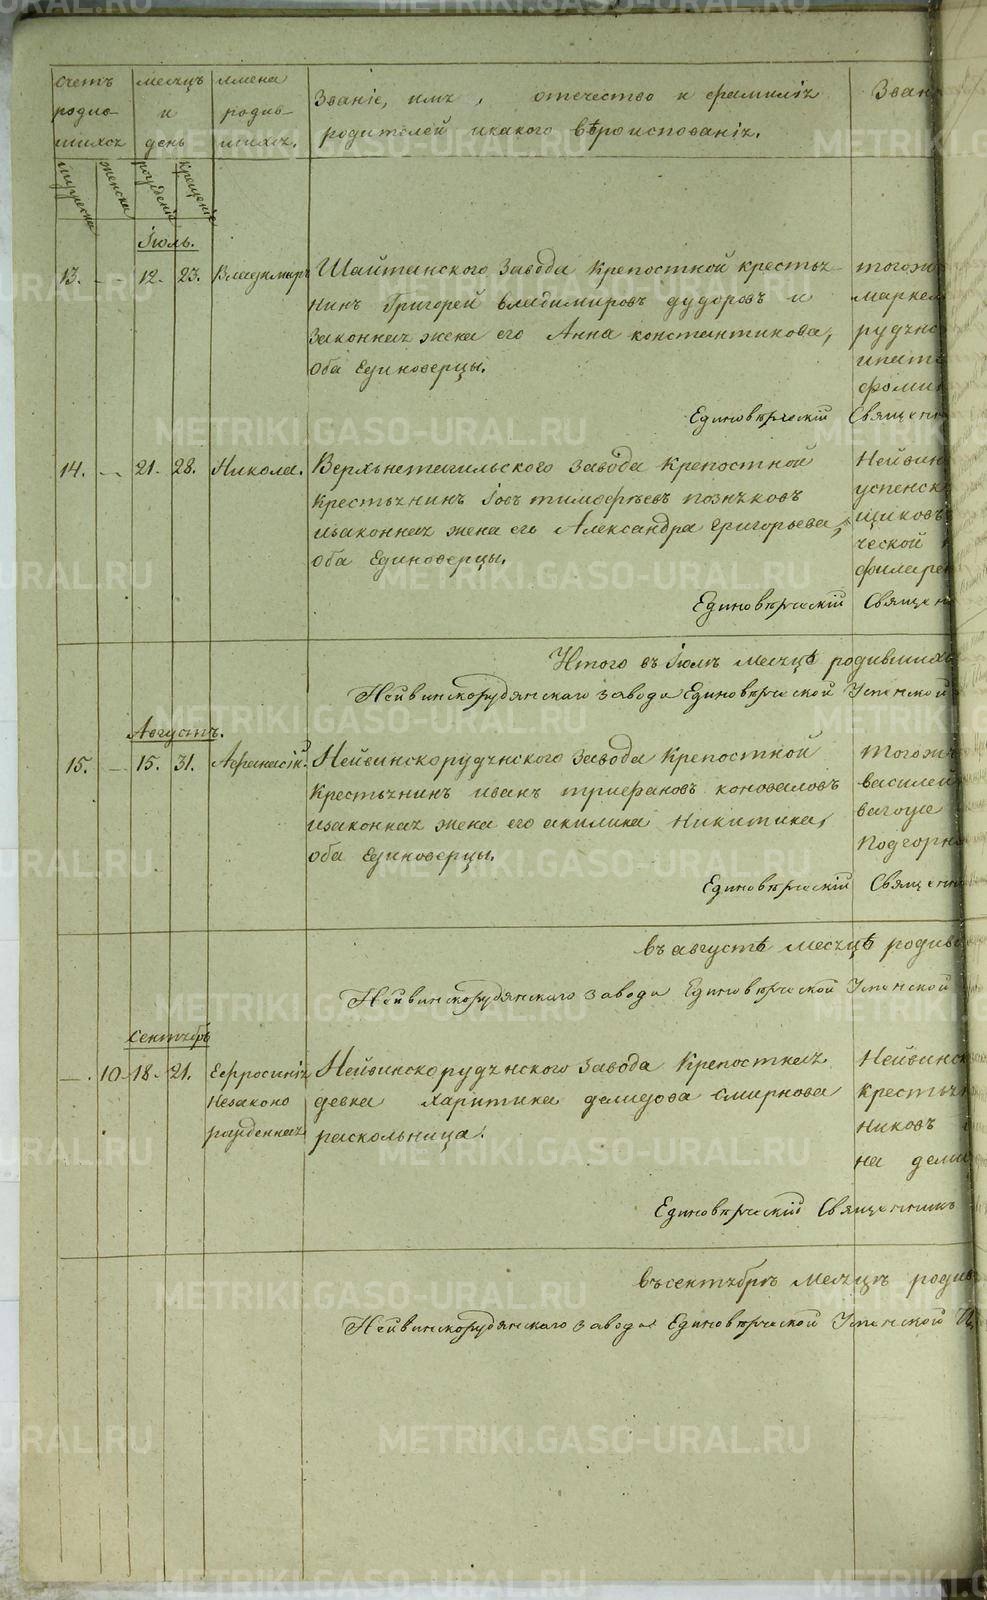 счетъ родив-шихся
месяцъ и день
имена родив-шихся.
Званіе, имя, отечество и фамилія
родителей икакого вѣроисповѣданія.
Зван
мужеска
женска
рожденія
крещенія
Іюль.
13. - - 12. 23. Владимиръ Шайтанского завода крепостной крестья-
нинъ Григорей владимировъ дудоровъ и
законная жена его Анна константинова,
оба Единоверцы.
тогожъ
маркел
рудянс
ипат
фоми
Единовѣрческій Священ
14. - - 21. 28. Никола. Верхънетагильского завода крепостной
крестьянинъ Іовъ тимофѣевъ позняковъ
изаконная жена его Александра григорьева,
оба Единоверцы.
Нейвин
успенск
щиковъ
ческой
филарет
Единовѣрческій Священ
Итого въ Іюлѣ месяцѣ родившихъ
Нейвинскорудянскаго завода Единовѣрческой Успенской
Августъ.
15. - 15. 31. Афанасій. Нейвинскорудянского завода крепостной
крестьянинъ иванъ трифановъ коноваловъ
изаконная жена его акилина никитина,
оба Единоверцы.
Тогожъ
василей
Подгорн
Единовѣрческій Священн
въ августѣ месяцѣ родив
Нейвинскорудянскаго завода Единовѣрческой Успенской
сентябрь
- . 10 18. 21. Ефросинія Нейвинскорудянского завода крепостная
незаконо девка Харитина демидова смирнова
рожденная раскольница.
Нейвинск
крестья
никовъ
на деми
Единовѣрческій Священникъ
въ сентябрѣ месяцѣ родив
Нейвинскорудянскаго завода Единовѣрческой Успенской
METRIKI.GASO-URAL.RU